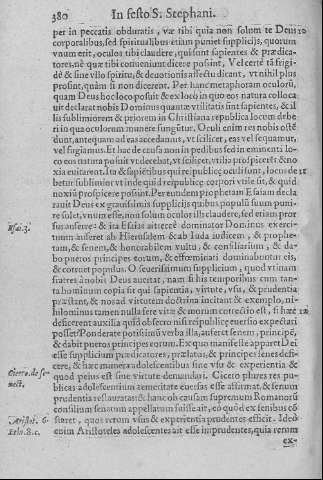 380 In festo S. Stephani.
per in peccatis obduratis, væ tibi quia non solum te Deus
corporalibus, sed spiritualibus etiam puniet supplicijs, quorum
vnum erit, oculos tibi claudere, qui sunt sapientes & prædica-
tores, nè quæ tibi conueniunt dicere possint, Vel certè tā frigi-
dè & sine vllo spiritu, & deuotionis affectu dicant, vt nihil plus
prosint, quàm si non dicerent. Per hanc metaphoram oculorū,
quam Deus hoc loco posuit & ex loco in quo eos natura colloca
uit declarat nobis Dominus quantæ vtilitatis sunt sapientes, & il
lis sublimiorem & priorem in Christiana republica locum debe
ri in qua oculorum munere fungūtur. Oculi enim res nobis ostē
dunt, antequam ad eas accedamus, vt scilicet, eas vel sequamur,
vel fugiamus. Et hac de causa non in pedibus sed in eminenti lo-
co eos natura posuit vt decebat, vt scilicet, vtilia prospicerēt & no
xia euitarent. Ita & sapiētibus qui reipublicæ oculi sunt, locus de
betur sublimior vt inde quid reipublicæ corpori vtile sit, & quid
noxiū prospicere possint. Per eundem prophetam Esaiam decla
rauit Deus ex grauissimis supplicijs quibus populū suum puni-
re solet, vnum esse, non solum oculos illis claudere, sed etiam pror
sus auferre: & ita Esaias ait: ecce dominator Dominus exerci-
tuum auferet ab Hierusalem & ab Iuda iudicem, & prophe-
tam, & senem, & honorabilem vultu, & consiliarium, & da-
bo pueros principes eorum, & effœminati dominabuntur eis,
& corruet populus. O seuerissimum supplicium, quod vtinam
fratres à nobis Deus auertat, nam si his temporibus cum tan-
ta hominum copia sit qui sapientia, virtute, vsu, & prudentia
præstant, & nos ad virtutem doctrina incitant & exemplo, ni-
hilominus tamen nulla fere vitæ & morum correctio est, si hæc
deficerent auxilia quid obsecro nisi reipublicę euersio expectari
posset? Ponderate potissimū verba illa, auferet senem, principē,
& dabit pueros principes eorum. Ex quo manifeste apparet Dei
esse supplicium prædicatores, prælatos, & principes senes defi-
cere, & hæc munera adolescentibus sine vsu & experientia &
quod peius est sine virtute demandari. Cicero plures res pu-
blicas adolescentium temeritate euersas esse affirmat. & senum
prudentia restauratas: & hanc ob causam supremum Romanorū
consilium senatum appellatum fuisse ait, eo quòd ex senibus cō
staret, quos rerum vsus & experientia prudentes efficit. Ideo
enim Aristoteles adolescentes ait esse imprudentes, quia rerum
ex-
10
15
Esai. 3.
Cicero. de se-
nect.
Aristot. 6.